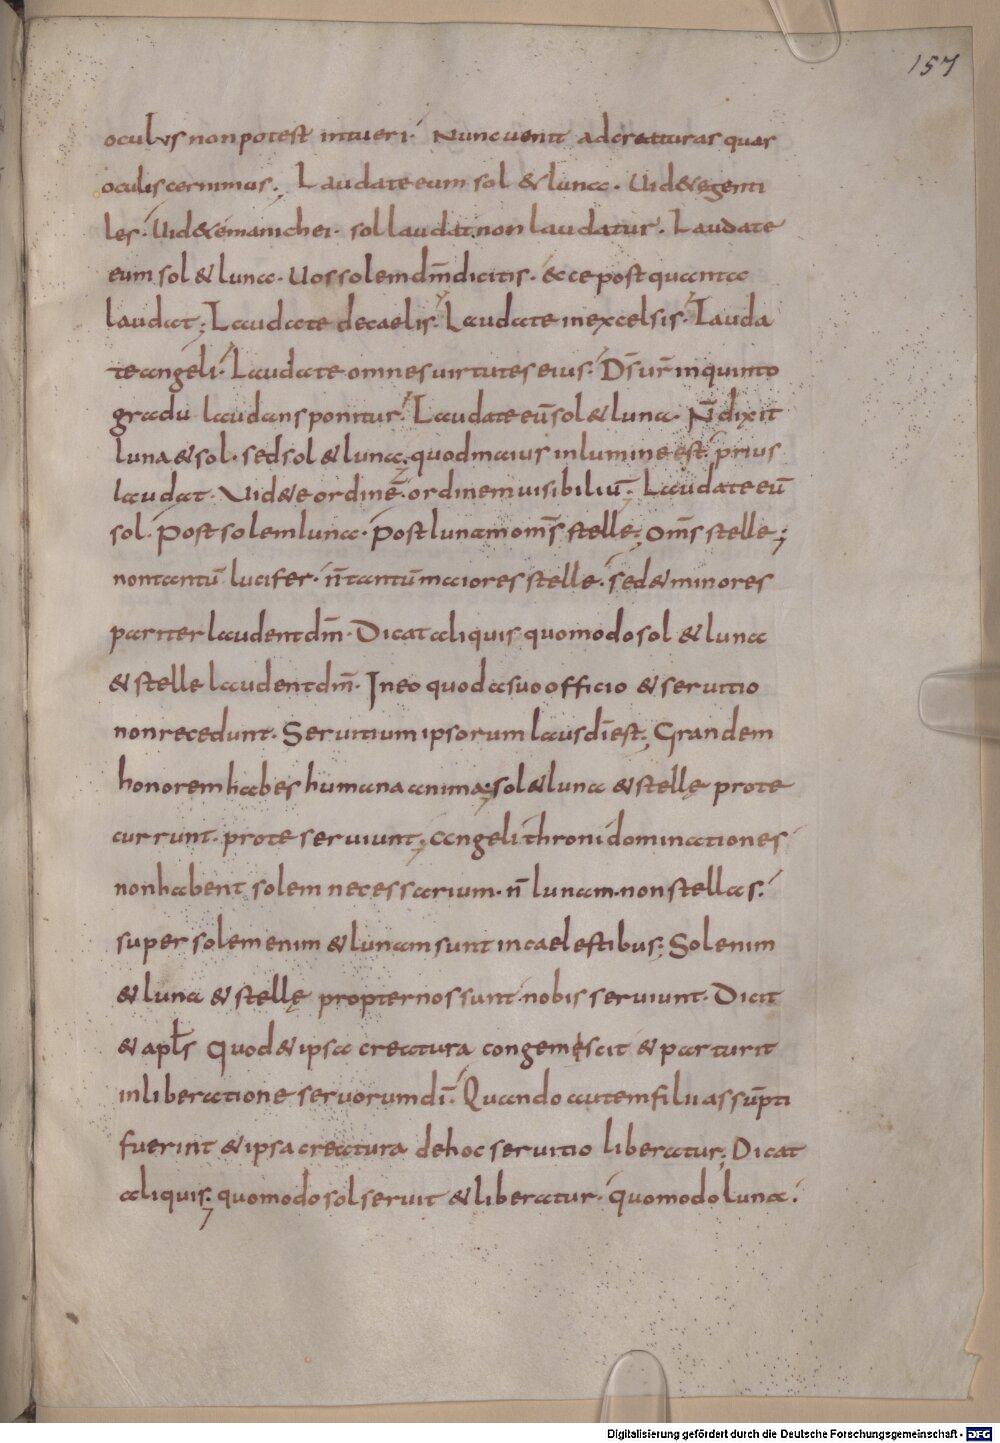 157
oculus non potest intueri. Nunc uenit ad creaturas quas
oculis cernimus; Laudate eum sol & luna. Uid&e genti
les. Uid&e manichei. sol laudat. non laudatur. Laudate
eum sol & luna. Uos solem dm̄ dicitis. ecce post quanta
laudat; Laudate de caelis. Laudate in excelsis. Lauda
te angeli. Laudate omnes uirtutes eius. Ds̄ ur̄ in quinto
gradu laudans ponitur. Laudate eū sol & luna. N̄ dixit
luna & sol. sed sol & luna. quod maius in lumine est. prius
laudat. Uid&e ordinē. ordinem uisibiliū; Laudate eū
sol. Post solem luna. Post lunam oms̄ stelle; oms̄ stelle;
non tantū lucifer. n̄ tantū maiores stelle. sed & minores
pariter laudent dm̄. Dicat aliquis quomodo sol & luna
& stelle laudent dm̄. In eo quod a suo officio & seruitio
non recedunt. Seruitium ipsorum laus dī est; Grandem
honorem habes humana anima; sol & luna & stellę pro te
currunt. pro te seruiunt; angeli throni dominationes
non habent solem necessarium. n̄ lunam. non stellas.
super solem enim & lunam sunt in caelestibus; Sol enim
& luna & stellę propter nos sunt. nobis seruiunt. Dicit
& apls̄ Quod & ipsa creatura congemęscit & parturit
in liberatione seruorum dī. Quando autem filii assūpti
fuerint & ipsa creatura de hoc seruitio liberatur; Dicat
aliquis; quomodo sol seruit & liberatur. quomodo luna.
Digitalisierung gefördert durch die Deutsche Forschungsgemeinschaft - DFG